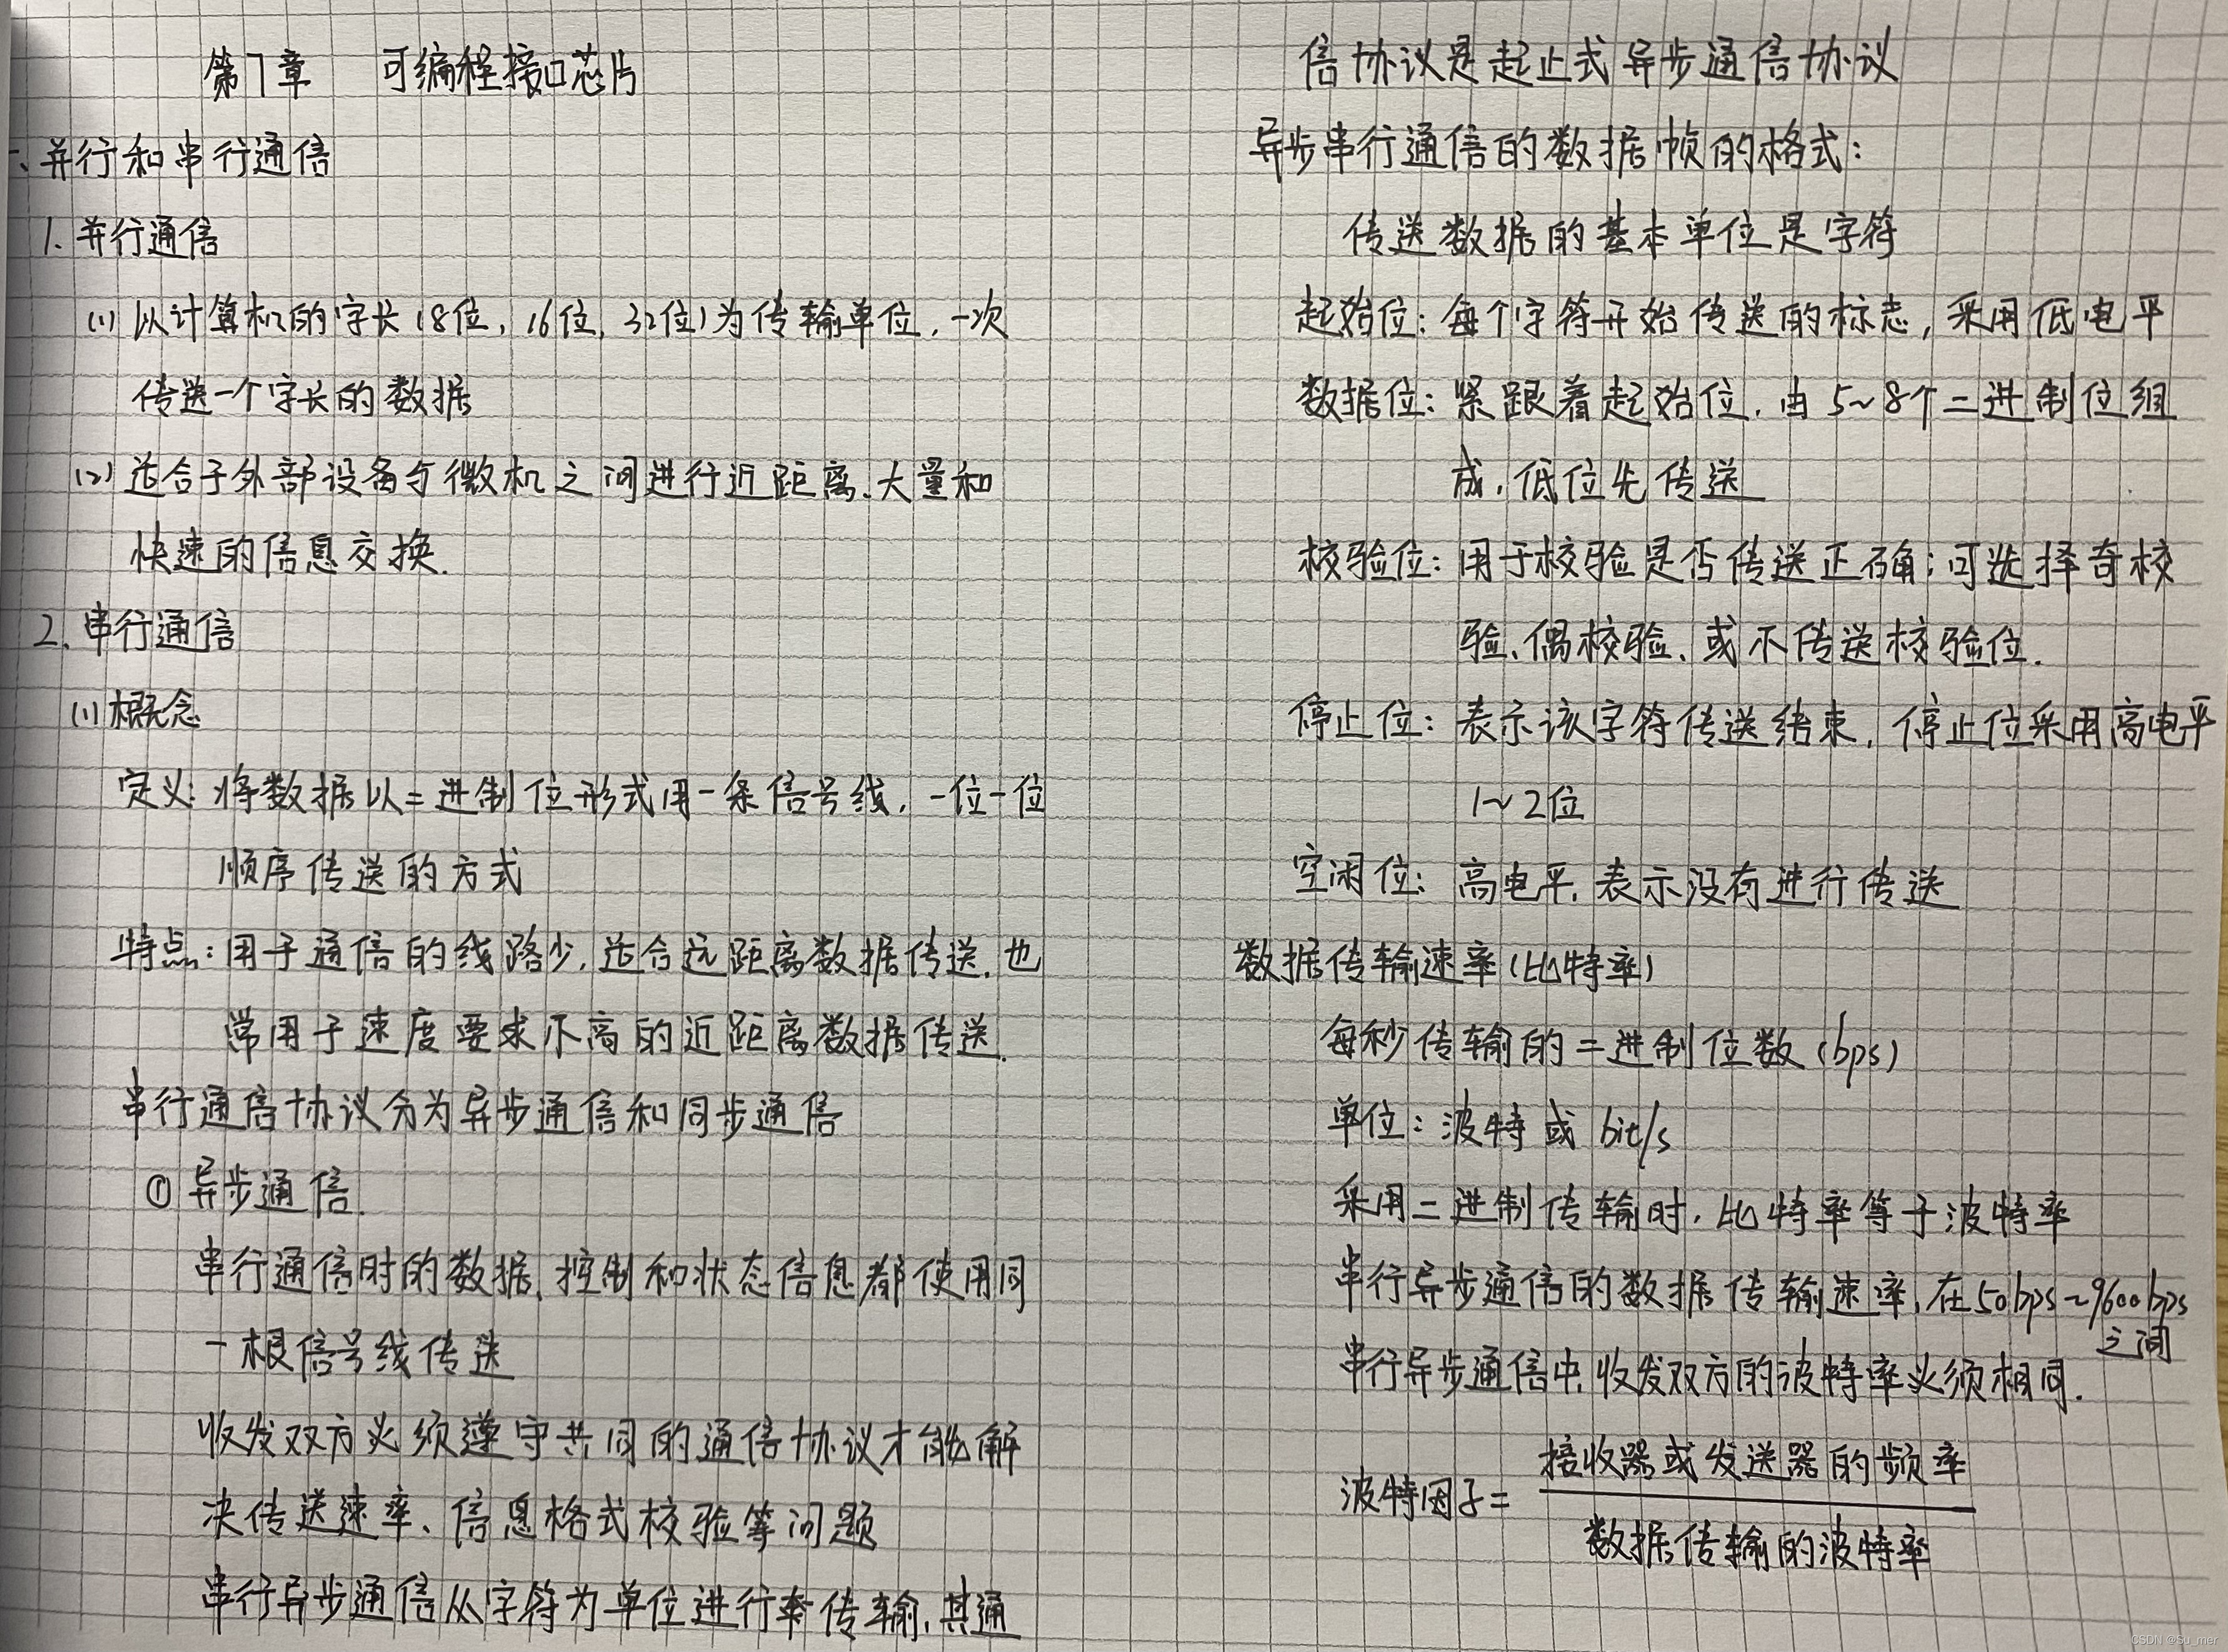 第7章 可编程接口芯片
一、并行和串行通信
1. 并行通信
(1) 以计算机的字长(8位, 16位, 32位)为传输单位, 一次
传送一个字长的数据
(2) 适合于外部设备与微机之间进行近距离、大量和
快速的信息交换.
2. 串行通信
(1) 概念
定义: 将数据以二进制位形式用一条信号线, 一位一位
顺序传送的方式
特点: 用于通信的线路少, 适合远距离数据传送, 也
常用于速度要求不高的近距离数据传送.
串行通信协议分为异步通信和同步通信
① 异步通信.
串行通信时的数据、控制和状态信息都使用同
一根信号线传送
收发双方必须遵守共同的通信协议才能解
决传送速率、信息格式校验等问题
串行异步通信从字符为单位进行传输, 其通
信协议是起止式异步通信协议
异步串行通信的数据帧的格式:
传送数据的基本单位是字符
起始位: 每个字符开始传送的标志, 采用低电平
数据位: 紧跟着起始位, 由5~8个二进制位组
成, 低位先传送
校验位: 用于校验是否传送正确; 可选择奇校
验、偶校验、或不传送校验位.
停止位: 表示该字符传送结束, 停止位采用高电平
1~2位
空闲位: 高电平, 表示没有进行传送
数据传输速率(比特率)
每秒传输的二进制位数(bps)
单位: 波特或 bit/s
采用二进制传输时, 比特率等于波特率
串行异步通信的数据传输速率, 在50bps~9600bps
之间
串行异步通信中, 收发双方的波特率必须相同.
波特因子= 接收器或发送器的频率
数据传输的波特率
CSDN @Su_mer